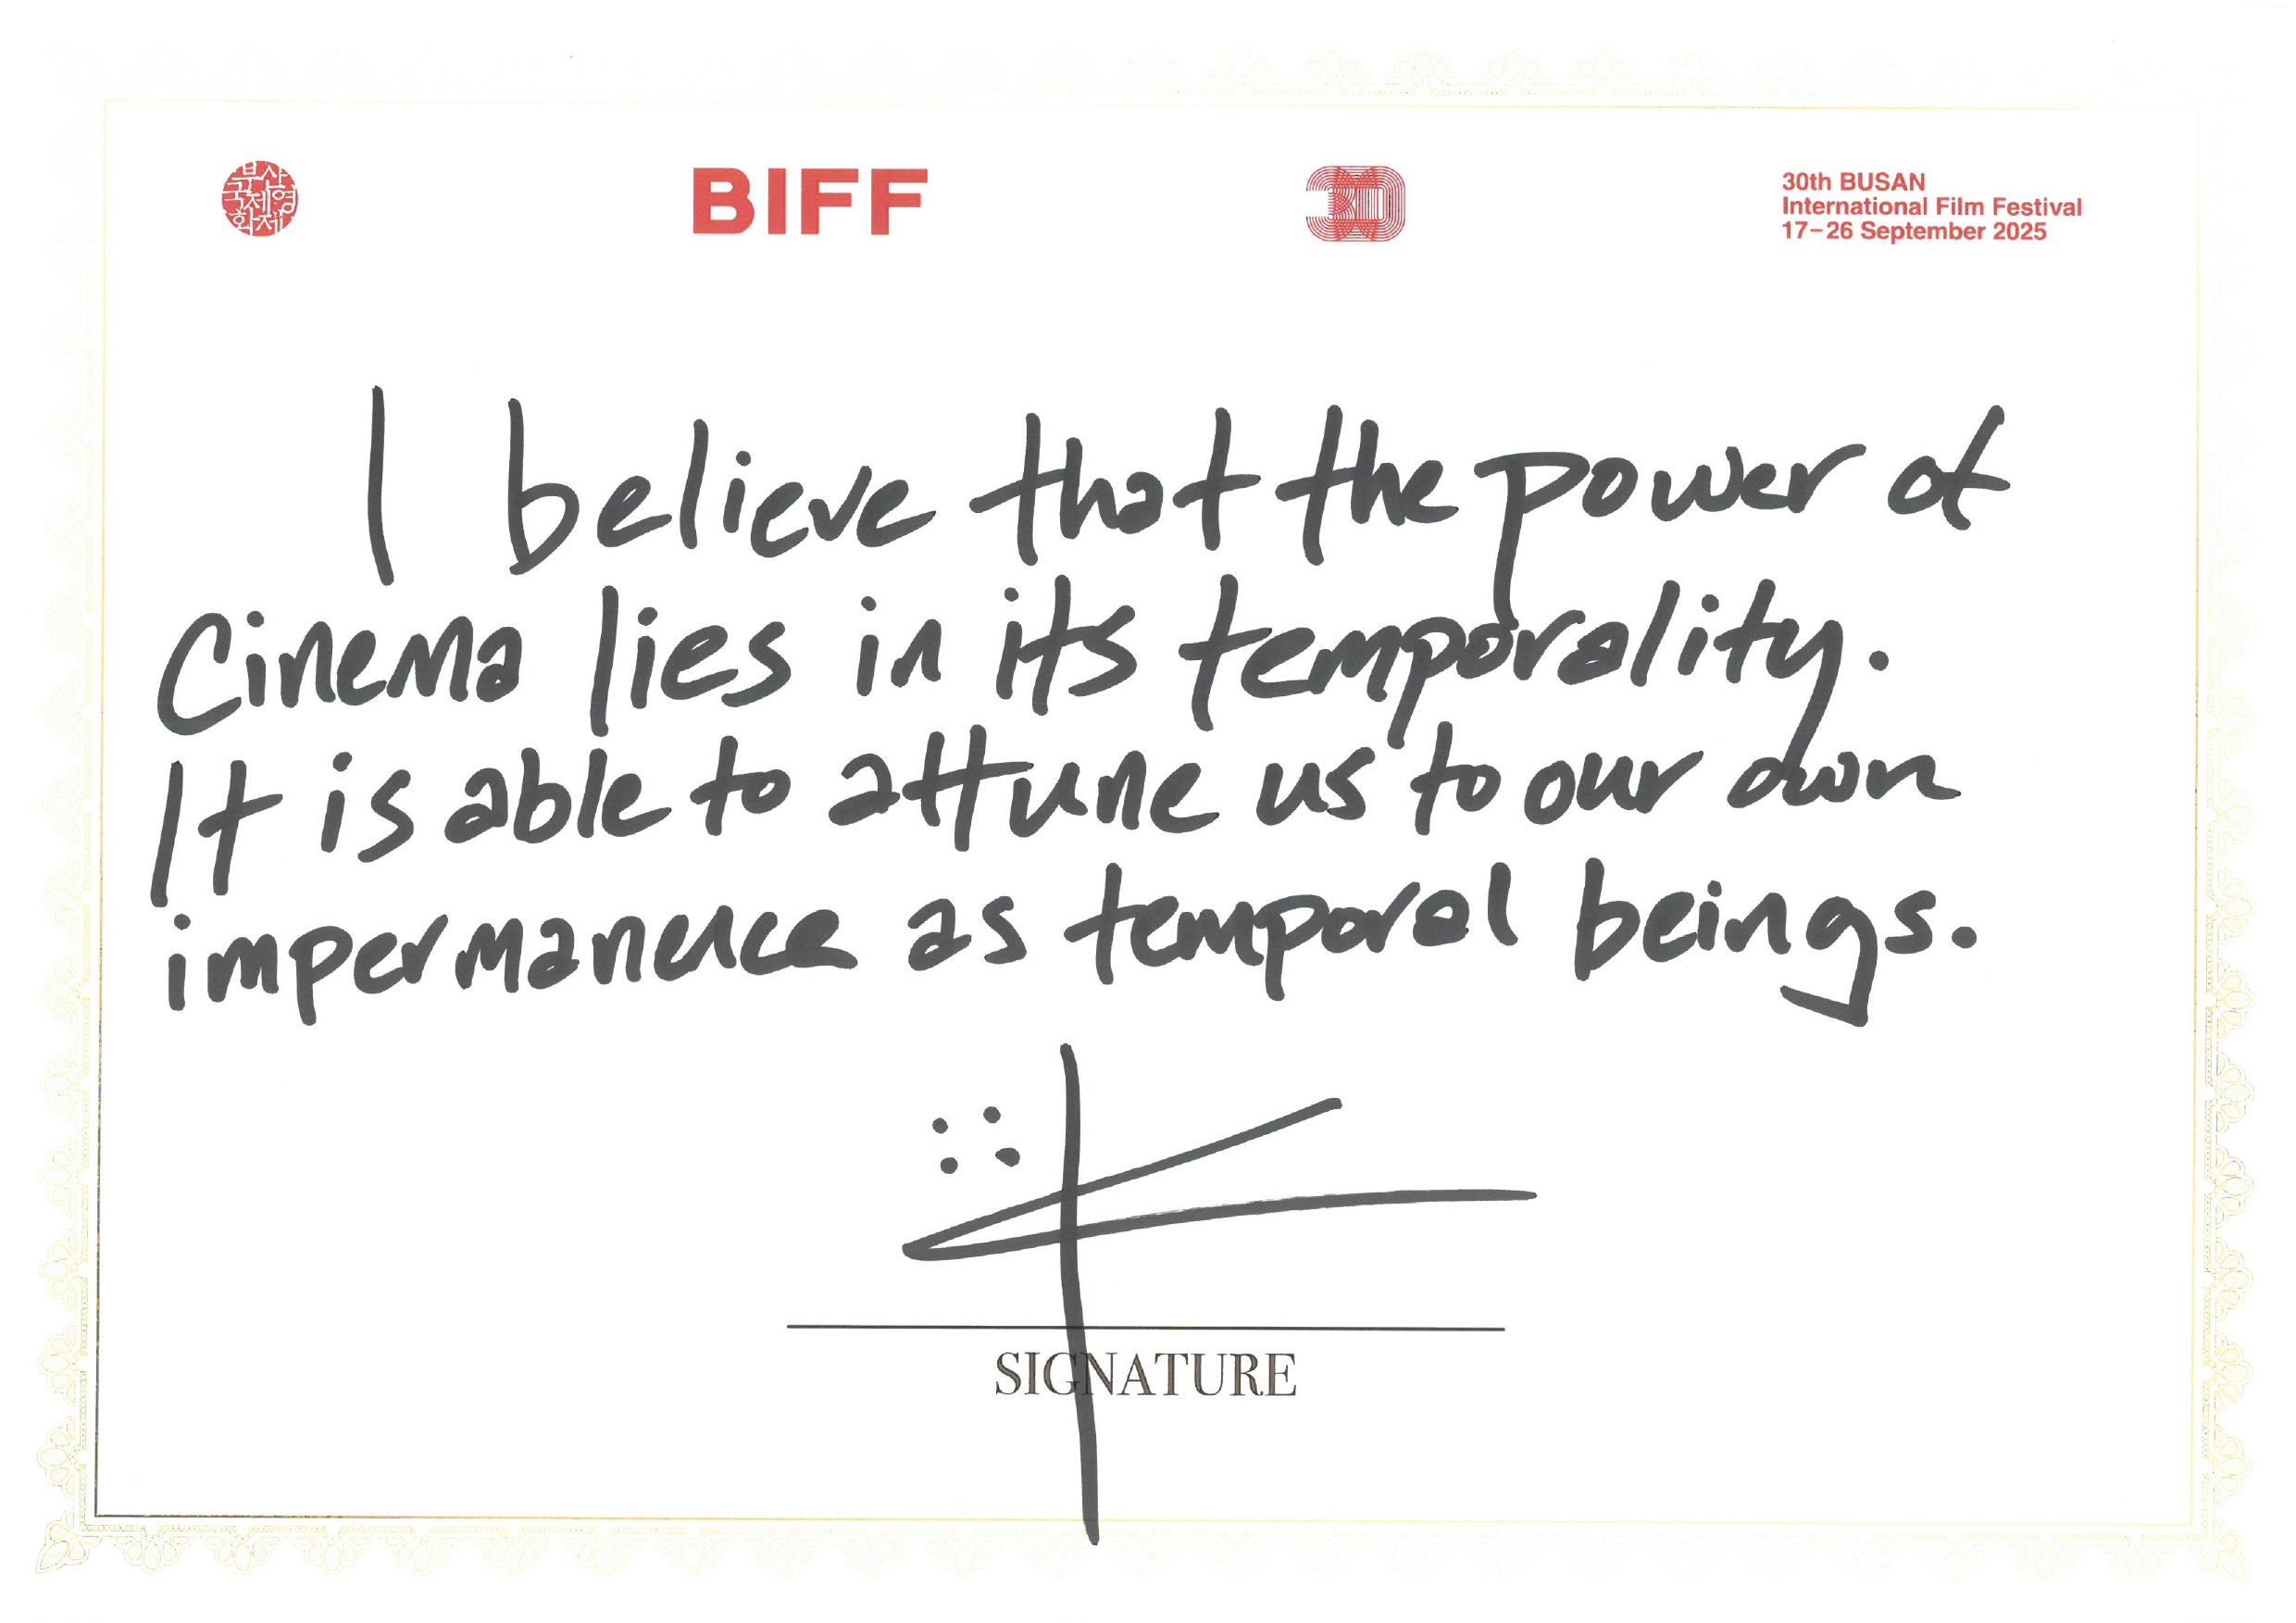 부산
국제영
화제
BIFF
30
30th BUSAN
International Film Festival
17–26 September 2025
I believe that the power of
Cinema lies in its temporality.
It is able to attune us to our own
impermanence as temporal beings.
SIGNATURE